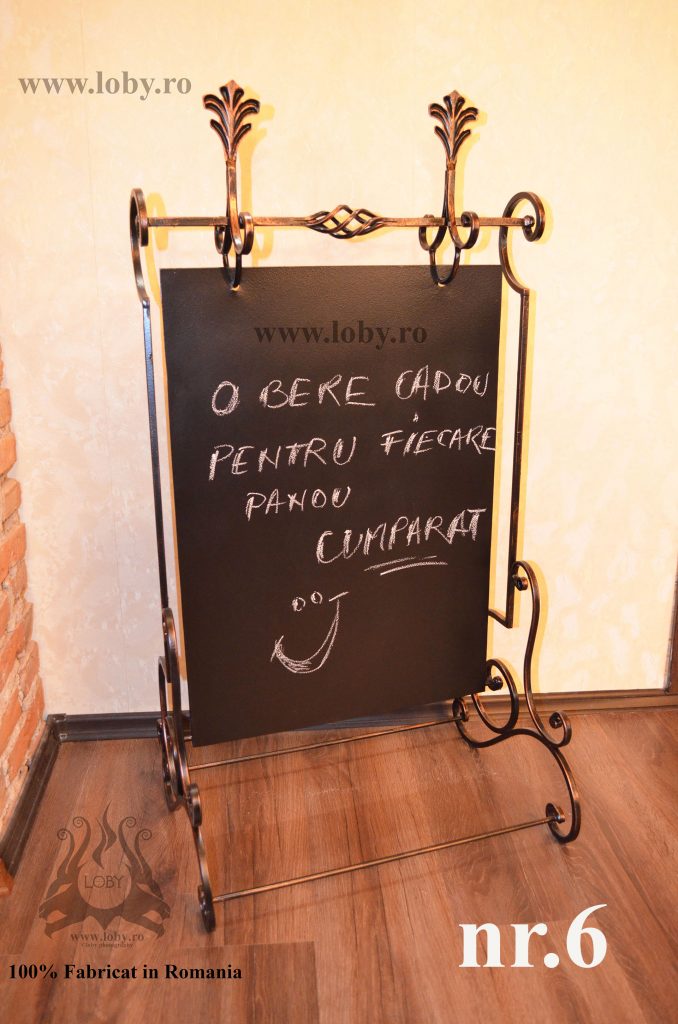 www.loby.ro
www.loby.ro
O BERE CADOU
PENTRU FIECARE
PANOU
CUMPARAT
LOBY
www.loby.ro
©loby photography
100% Fabricat in Romania
nr.6